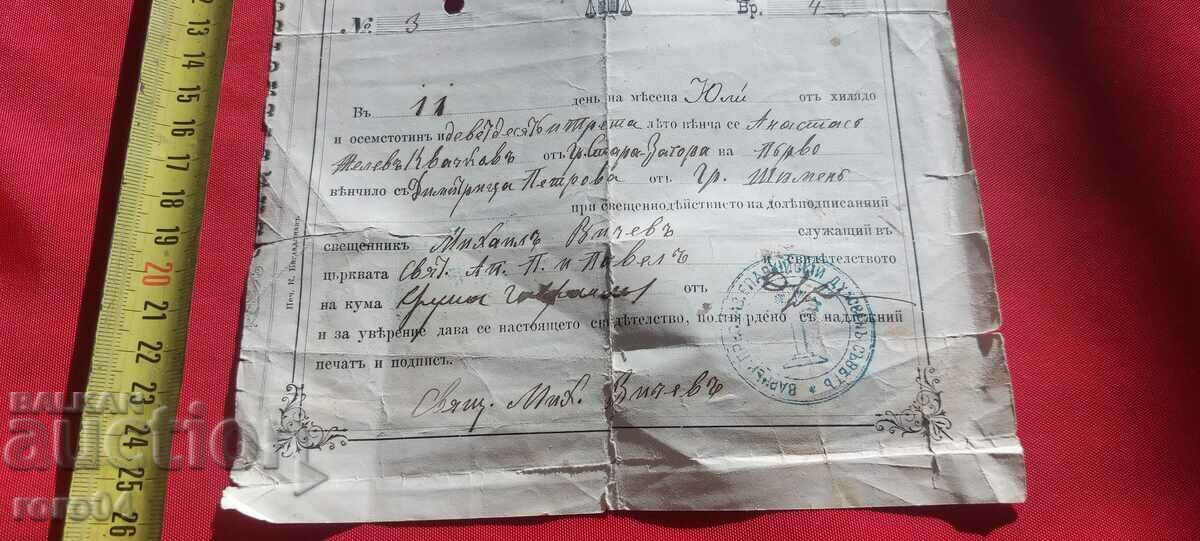 № 3 Бр. 4
Въ 11 день на мѣсеца Юлй отъ хилядо
и осемстотинъ и деветдесять и трета лѣто вѣнча се Анастасъ
Желевъ Квачковъ отъ гр. Стара-Загора на първо
вѣнчило съ Димитрица Петрова отъ гр. Шуменъ
при свещенодѣйствието на долѣподписаний
свещенникъ Михаилъ Вичевъ служащий въ
църквата Свят. Ап. П. и Павелъ и свидѣтелството
на кума отъ
и за увѣрение дава се настоящето свидѣтелство, подтвърдено съ надлѣжний
печатъ и подпис.
Свящ. Мих. Вичевъ
ДУХОВЕНЪ СЪВѢТЪ * ВАРН
Печ. К.
BALKAN
auction
roro04
12 13 14 15 16 17 18 19 20 21 22 23 24 25 26